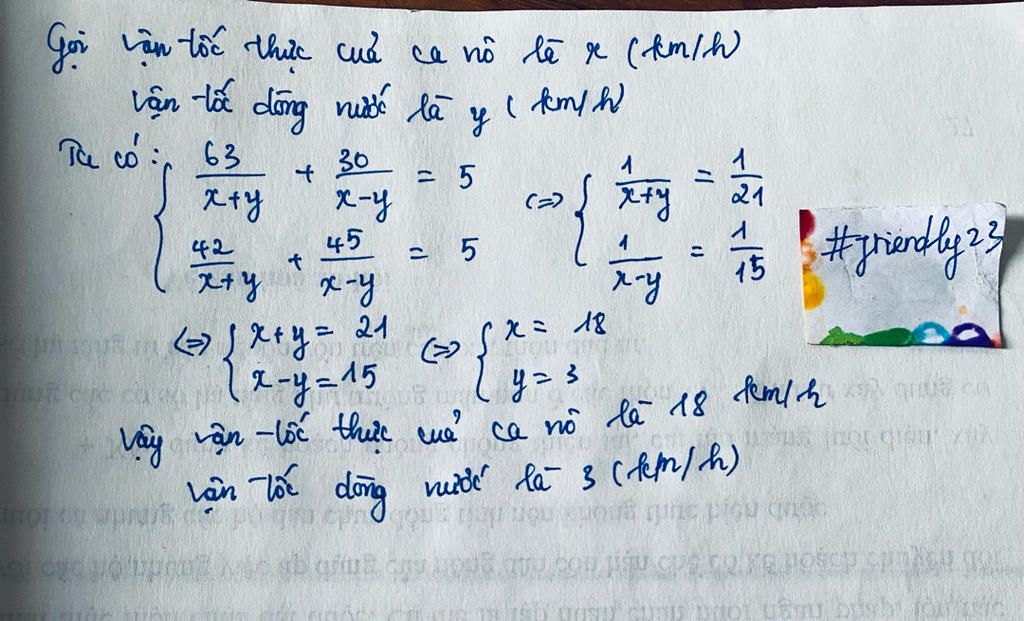 Gọi vận tốc thực cuả ca nô là x (km/h)
vận tốc dòng nước là y (km/h)
Ta có: { 63/(x+y) + 30/(x-y) = 5
42/(x+y) + 45/(x-y) = 5
<=> { 1/(x+y) = 1/21
1/(x-y) = 1/15
#friendly23
<=> { x+y = 21
x-y = 15
<=> { x = 18
y = 3
Vậy vận tốc thực cuả ca nô là 18 km/h
vận tốc dòng nước là 3 (km/h)